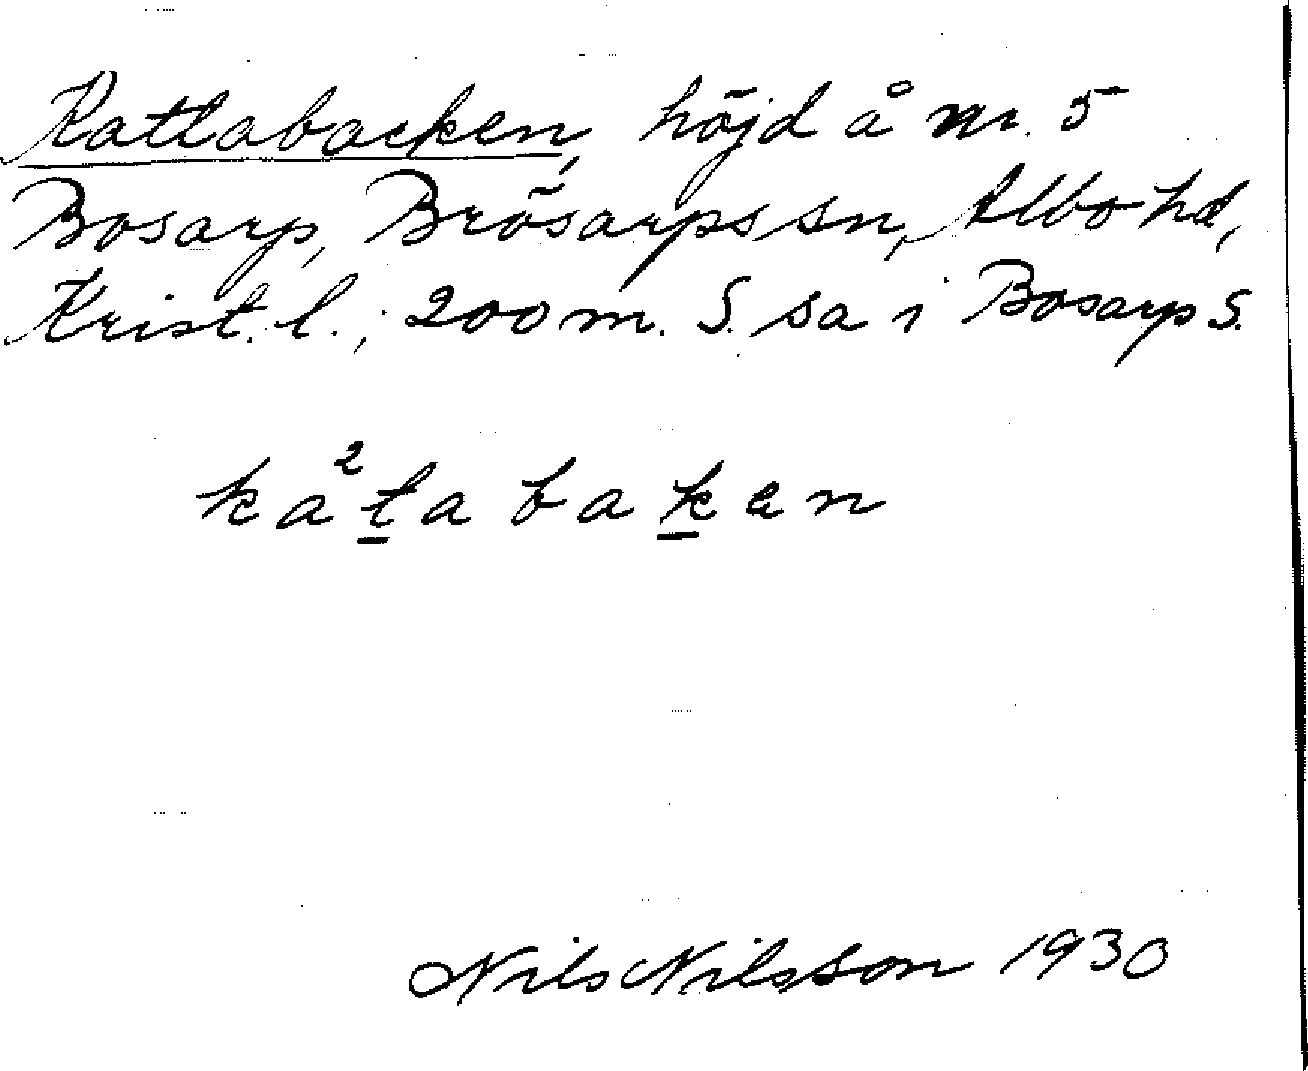 Kattabacken, höjd å nr. 5
Bosarp, Brösarps sn, Albo hd,
Krist. l.; 200 m. S. sa i Bosarp S.
ka²tabaken
Nils Nilsson 1930